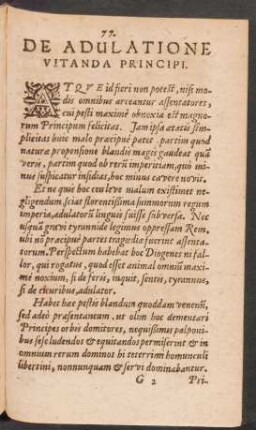 77.
DE ADULATIONE
VITANDA PRINCIPI.
ATQVE id fieri non potest, nisi mo-
dis omnibus arceantur assentatores,
cui pesti maximè obnoxia est magno-
rum Principum felicitas. Iam ipsa ætatis sim-
plicitas huic malo præcipuè patet partim quòd
naturæ propensione blandis magis gaudeat quã
veris, partim quod ob rerũ imperitiam, quò mi-
nus suspicatur insidias, hoc minus cavere novit.
Et ne quis hoc ceu leve malum existimet ne-
gligendum, sciat florentissima summorum regum
imperia, adulatorũ linguis fuisse subversa. Nec
usquã gravi tyrannide legimus oppressam Rem,
ubi nõ præcipuæ partes tragœdiæ fuerint assenta-
torum. Perspectum habebat hoc Diogenes ni fal-
lor, qui rogatus, quod esset animal omniũ maxi-
mè noxium, si de feris, inquit, sentis, tyrannus,
si de cicuribus, adulator.
Habet hæc pestis blandum quoddam venenũ,
sed adeò præsentaneum, ut olim hoc dementati
Principes orbis domitores, nequissimis palponi-
bus sese ludendos & equitandos permiserint & in
omnium rerum dominos hi teterrimi homunculi
libertini, nonnunquam & servi dominabantur.
G 2 Pri-